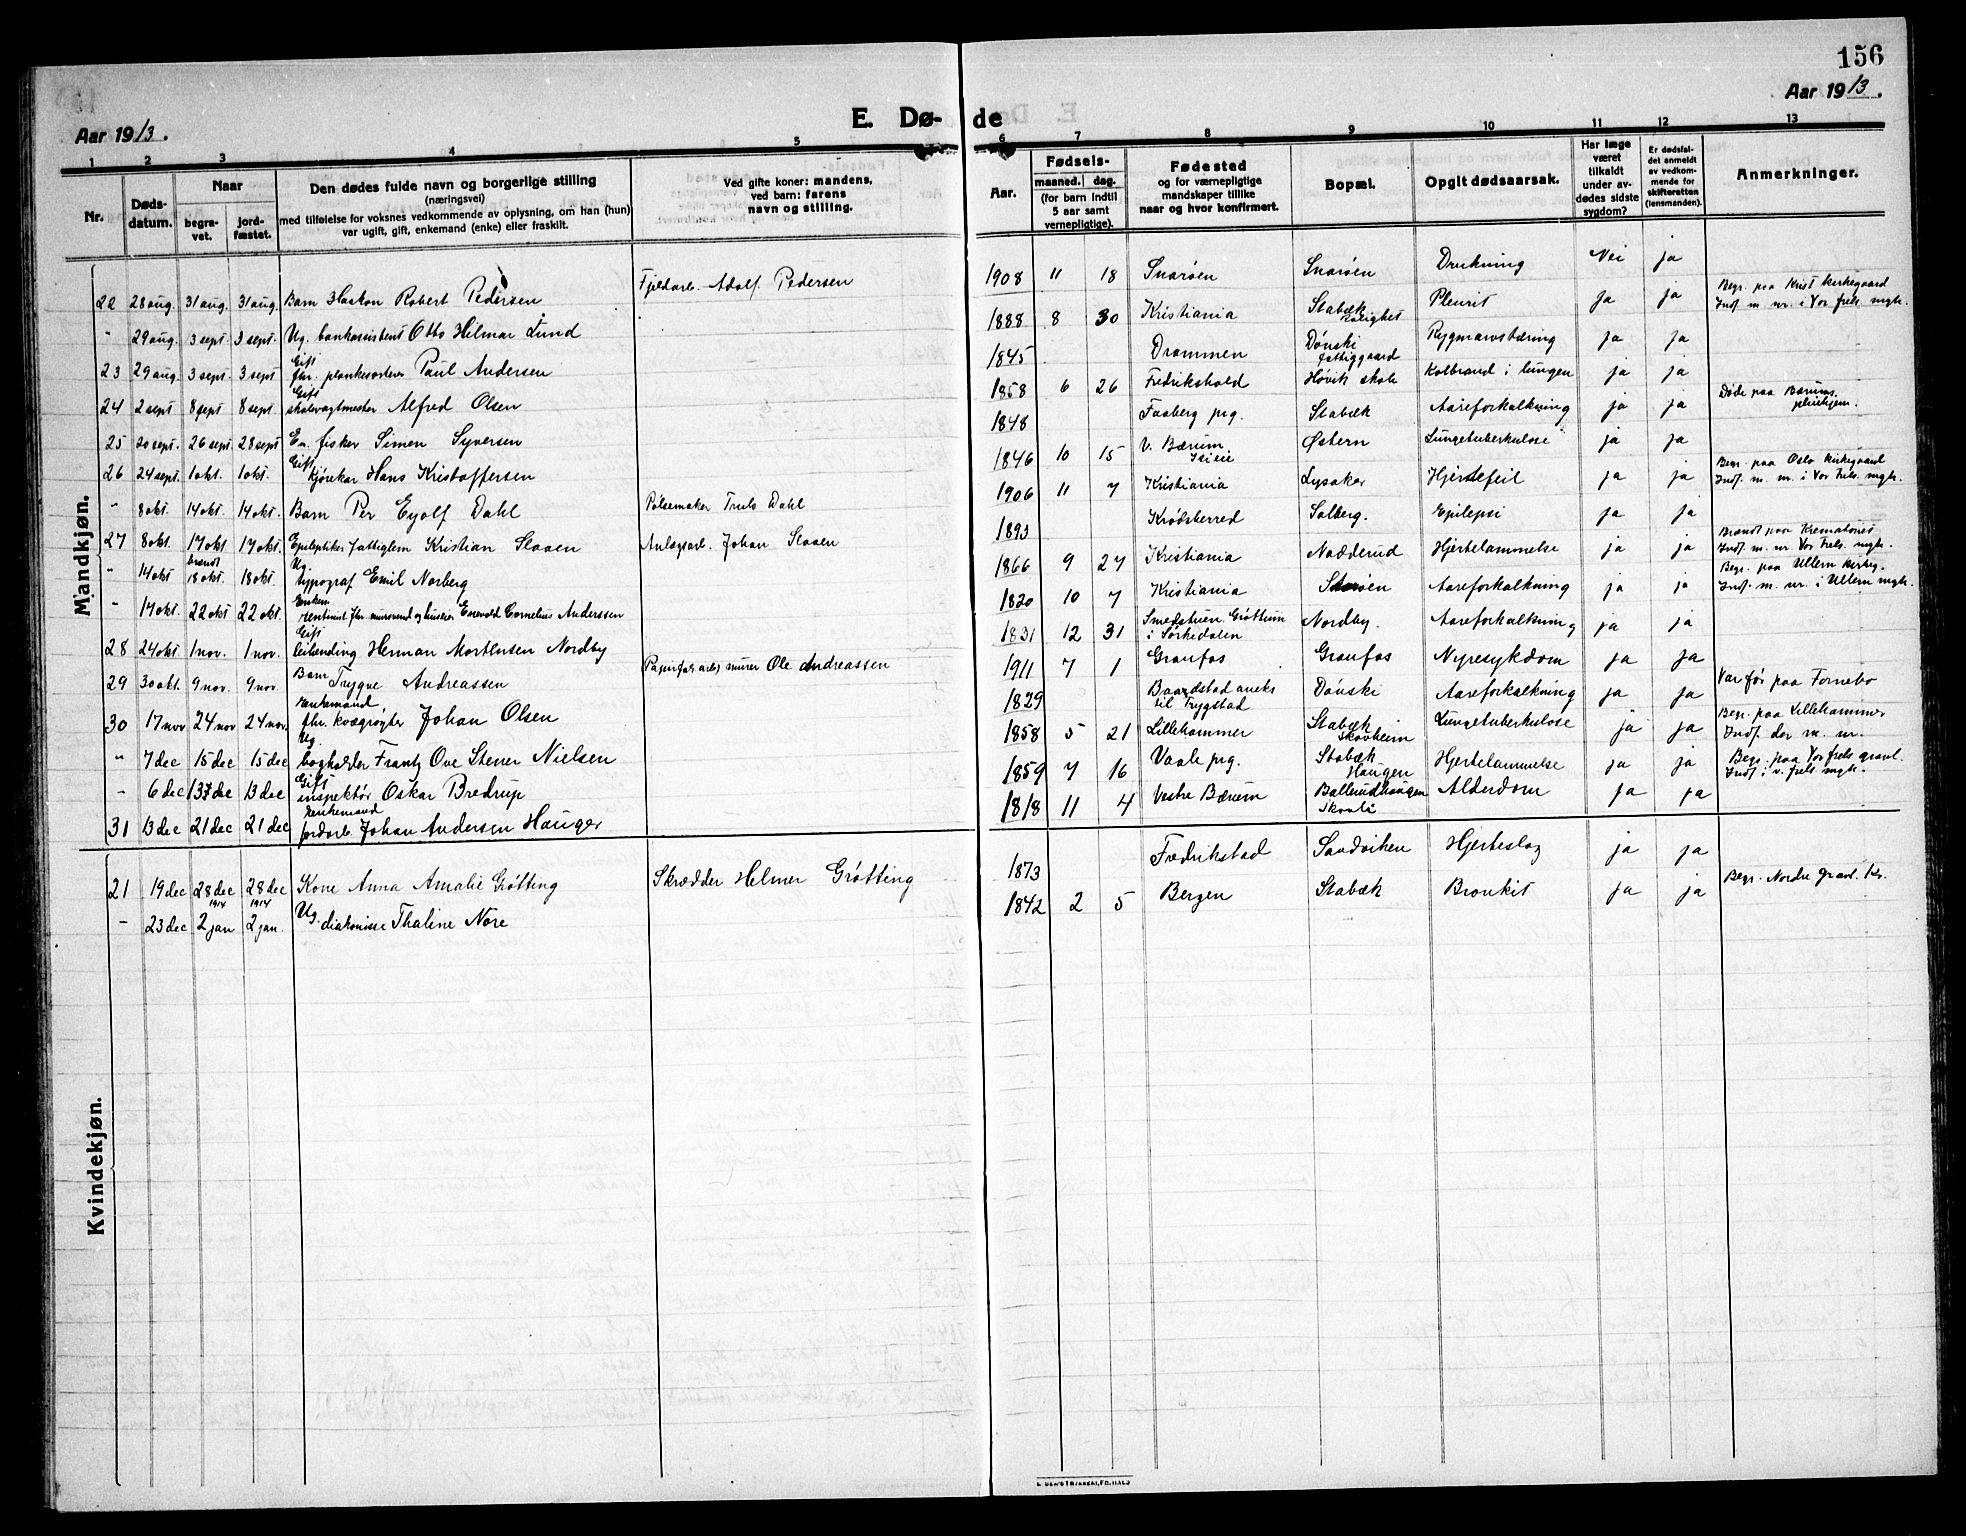 156
Aar 1913.
Aar 1913.
E. Dø- de
1 2 3 4 5 6 7 8 9 10 11 12 13
Nr.
Døds-datum.
Naar
begra-vet.
jord-fæstet.
Den dødes fulde navn og borgerlige stilling
(næringsvei)
med tilføielse for voksnes vedkommende av oplysning, om han (hun)
var ugift, gift, enkemand (enke) eller fraskilt.
Ved gifte koner: mandens,
ved barn: farens
navn og stilling.
Aar.
Fødsels-
maaned. dag.
(for barn indtil
5 aar samt
vernepligtige).
Fødested
og for værnepligtige
mandskaper tillike
naar og hvor konfirmert.
Bopæl.
Opgit dødsaarsak.
Har læge
været
tilkaldt
under av-
dødes sidste
sygdom?
Er dødsfal-
det anmeldt
av vedkom-
mende for
skifteretten
(lensmanden).
Anmerkninger.
Mandkjøn.
22 28 aug. 31 aug. 31 aug. Barn Haakon Robert Pedersen Fjeldarb. Adolf Pedersen 1908 11 18 Snarøen Snarøen Drukning Nei ja
" 29 aug. 3 sept. 3 sept. Ug. bankassistent Otto Hilmar Lund 1888 8 30 Kristiania Stabæk Rolighet Pleurit ja ja Begr. paa Krist kirkegaard Indf. m. nr. i Vor frels. mgh.
23 29 aug. 3 sept. 3 sept Gift fhr. plankesorterer Paul Andersen 1845 Drammen Dønski fattiggaard Rygmarvstæring ja ja
24 2 sept 8 sept 8 sept. Gift skolevagtmester Alfred Olsen 1858 6 26 Fredrikshald Høvik skole Kolbrand i lungen ja ja
25 20 sept. 26 sept. 28 sept Em. fisker Simen Syversen 1848 Faaberg prg. Stabæk Aareforkalkning ja ja Døde paa Bærums pleiehjem.
26 24 sept. 1 okt. 1 okt. Gift kjørekar Hans Kristoffersen 1846 10 15 V. Bærum Østern Lungetuberkulose ja ja
" 8 okt. 14 okt. 14 okt. Barn Per Eyolf Dahl Pølsemaker Truls Dahl 1906 11 7 Kristiania Lysaker Hjertefeil ja ja Begr. paa Oslo kirkegaard Indf. m. nr. i Vor Frels. mgh.
27 8 okt. 17 okt 17 okt. Epileptiker fattiglem Kristian Slaaen Anlægsarb. Johan Slaaen 1893 Krødsherred Solberg. Epilepsi ja ja
" 14 okt brændt 18 okt. 18 okt. Ug. typograf Emil Norberg 1866 9 27 Kristiania Nadderud Hjertelammelse ja ja Brændt paa Krematoriet Indf. m. nr. Vor Frels. mgh.
" 17 okt. 22 okt 22 okt. Enkem. rentenist fhr. murersvend og huseier Enevold Cornelius Anderssen 1820 10 7 Kristiania Aareforkalkning ja ja Begr. paa Ullern kirkeg. Indf. m. nr. i Ullern mgh.
28 24 okt 1 nov. 1 nov. Gift leilending Herman Mortensen Nordby 1831 12 31 Smedstuen Grøttum i Sørkedalen Nordby. Aareforkalkning ja ja
29 30 okt. 9 nov. 9 nov. Barn Trygve Andreassen Papirfabr.arb. murer Ole Andreassen 1911 7 1 Granfos Granfos Nyresykdom ja ja
30 17 nov 24 nov 24 nov. Enkemand, fhr. kvægrøgter Johan Olsen 1829 Baastad aneks til Trygstad Dønski Aareforkalkning ja ja Var før paa Fornebo
" 7 dec 15 dec 15 dec Ug. bogholder Frantz Ove Stener Nielsen 1858 5 21 Lillehammer Stabæk Skovheim Lungetuberkulose ja ja Begr. paa Lillehammer Indf. der m. nr.
" 6 dec 13 dec 13 dec Gift inspektør Oskar Bredrup 1859 7 16 Vaale prg. Stabæk Haugen Hjertelammelse ja ja Begr. paa Vor frels gravl. Indf i v. frels mgh.
31 13 dec 21 dec 21 dec Enkemand jordarb. Johan Andersen Hauger 1818 11 4 Vestre Bærum Ballerudhaugen Alderdom ja ja
Kvindekjøn.
21 19 dec 28 dec 28 dec Kone Anna Amalie Grøtting Skrædder Helmer Grøtting 1873 Fredrikstad Sandviken Hjerteslag ja ja
" 23 dec 1914 2 jan 1914 2 jan. Ug. diakonisse Thaline Nore 1842 2 5 Bergen Stabæk Bronkit ja ja Begr. Nordre Gravl. Kr.